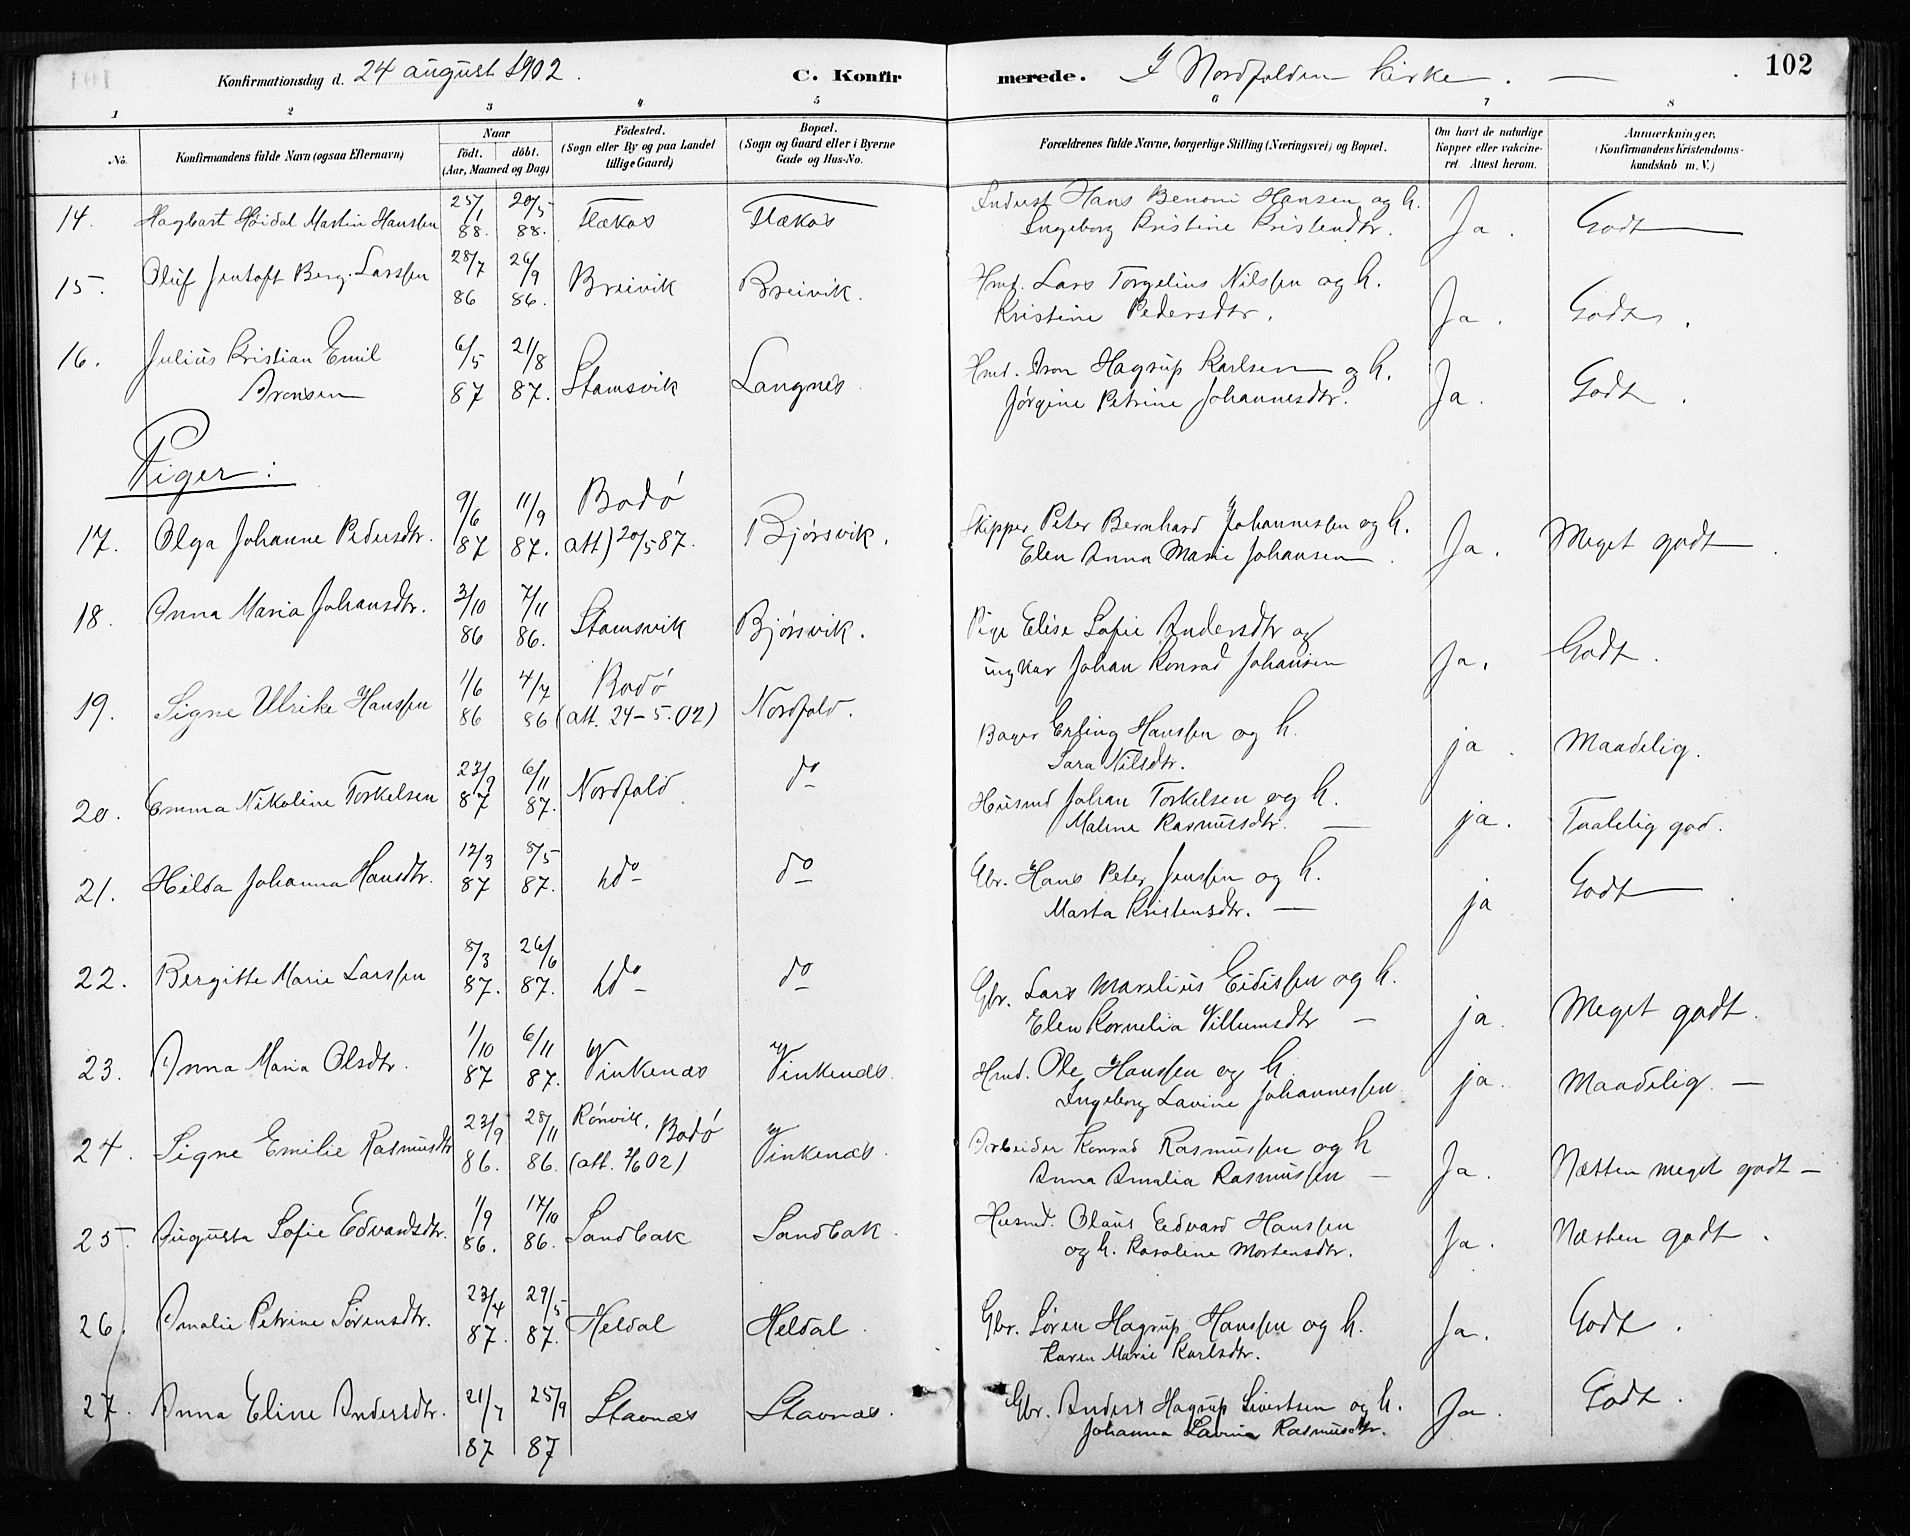 Konfirmationsdag d. 24 august 1902. C. Konfirmerede. I Nordfolden kirke. — 102
1 2 3 4 5 6 7 8
No.
Konfirmandens fulde Navn (ogsaa Efternavn)
Naar
födt. döbt.
(Aar, Maaned og Dag)
Födested.
(Sogn eller By og paa Landet
tillige Gaard)
Bopæl.
(Sogn og Gaard eller i Byerne
Gade og Hus-No.
Forældrenes fulde Navne, borgerlige Stilling (Næringsvei) og Bopæl.
Om havt de naturlige
Kopper eller vakcine-
ret Attest herom.
Anmærkninger.
(Konfirmandens Kristendoms-
kundskab m. V.)
14. Hagbart Høidal Martin Hanssen 25/1 88. 20/5 88. Flækos Flækos Inderst Hans Benoni Hansen og h.
Ingeborg Kristine Kristendtr. Ja. Godt
15. Oluf Jentoft Berg. Larssen 28/7 86 26/9 86. Breivik Breivik. Hmd. Lars Torgelius Nilssen og h.
Kristine Pedersdtr. Ja. Godt.
16. Julius Kristian Emil
Aronsen 6/5 87 21/8 87. Stamsvik Langnes Hmd. Aron Hagrup Karlsen og h.
Jørgine Petrine Johannesdtr. Ja. Godt.
Piger:
17. Olga Johanne Pedersdtr. 9/6 87 11/9 87. Bodø
att) 20/5 87. Bjørsvik. Skipper Peter Bernhard Johannessen og h.
Elen Anna Marie Johansen. Ja. Meget godt.
18. Anna Maria Johansdtr. 3/10 86 7/11 86. Stamsvik Bjørsvik. Pige Elise Sofie Andersdtr og
ungkar Johan Konrad Johansen Ja. Godt.
19. Signe Ulrike Hanssen 1/6 86 4/7 86 Bodø
(att. 24-5.02) Nordfold. Bager Erling Hanssen og h.
Sara Nilsdtr. ja. Maadelig.
20. Emma Nikoline Torkelsen 23/9 87 6/11 87. Nordfold do Husmd Johan Torkelsen og h.
Maline Rasmussdtr. — ja. Taalelig god.
21. Hilda Johanna Hansdtr. 12/3 87 8/5 87. do do Gbr. Hans Peter Jenssen og h.
Marta Kristensdtr. — ja Godt
22. Bergitte Marie Larssen 8/3 87. 26/6 87. do do Gbr. Lars Marelius Eidissen og h.
Elen Kornelia Villumsdtr — ja. Meget godt.
23. Anna Maria Olsdtr. 1/10 87 6/11 87. Vinkenæs Vinkenæs. Hmd. Ole Hanssen og h.
Ingeborg Lavine Johannessen. ja. Maadelig. —
24. Signe Emilie Rasmusdtr 23/9 86. 28/11 86. Rønvik, Bodø
(att. 2/6 02) Vinkenæs. Arbeider Konrad Rasmussen og h
Anna Amalia Rasmussen — Ja. Næsten meget godt —
25. Augusta Sofie Edvardsdtr. 1/9 86. 17/10 86. Sandbak Sandbak. Husmd. Olaus Edvard Hanssen
og h. Karoline Mortensdtr. Ja. Næsten godt.
26. Amalie Petrine Sørensdtr. 23/4 87. 29/5 87. Heldal Heldal. Gbr. Søren Hagrup Hanssen og h.
Karen Marie Karlsdtr. Ja. Godt.
27. Anna Eline Andersdtr. 21/7 87 25/9 87 Stavnæs Stavnæs. Gbr. Anders Hagrup Sivertsen og h.
Johanna Lavina Rasmusdtr. Ja. Godt.